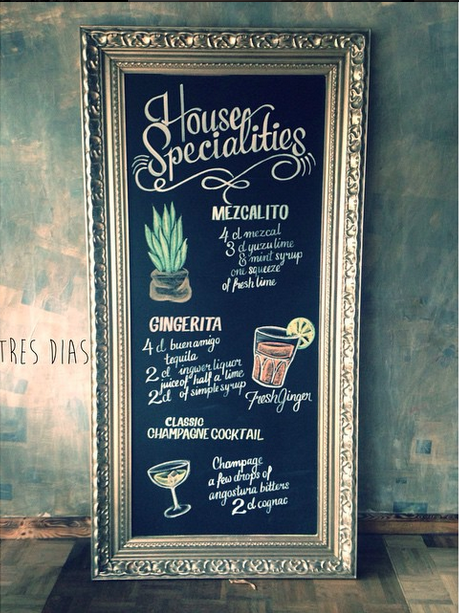 House
Specialities
MEZCALITO
4 cl mezcal
3 cl yuzu lime
& mint syrup
one squeeze
of fresh lime
GINGERITA
4 cl buen amigo
tequila
2 cl ingwer liquor
juice of half a lime
2 cl of simple syrup
Fresh Ginger
TRES DIAS
CLASSIC
CHAMPAGNE COCKTAIL
Champage
a few drops of
angostura bitters
2 cl cognac